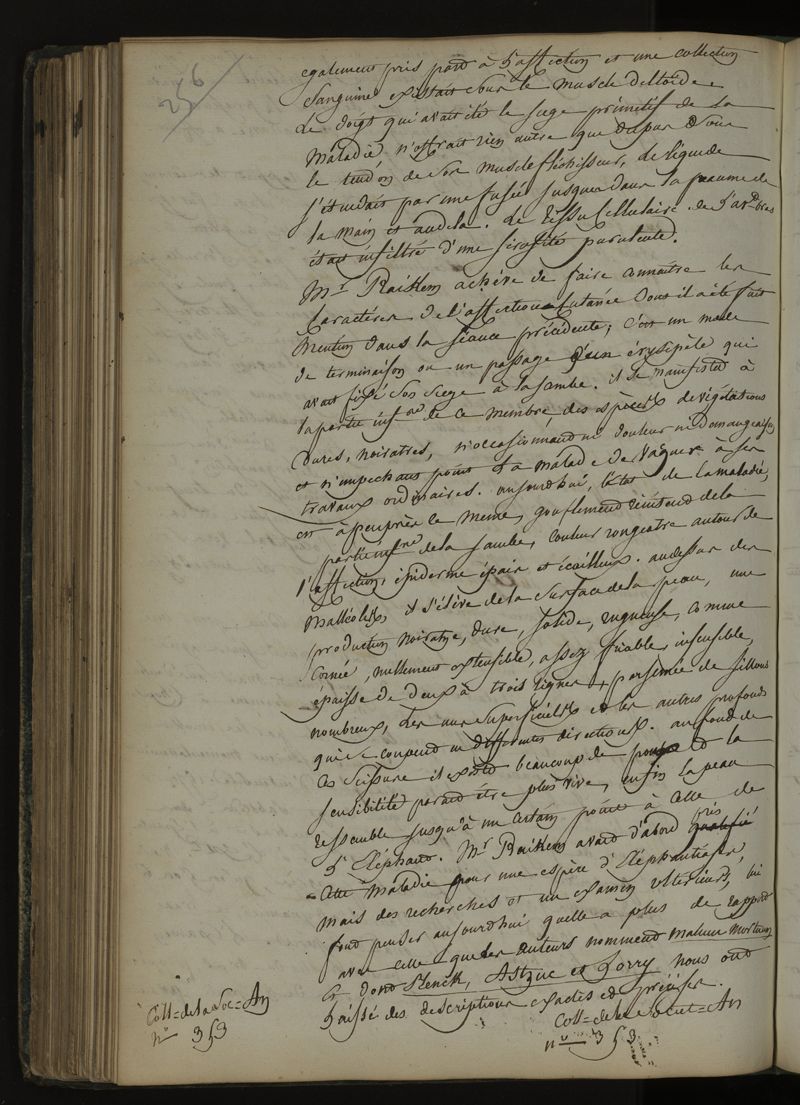 256
egalement pris part à l'affection et une collection
sanguine existait sous le muscle deltoide.
Le doigt qui avait été le siege primitif de la
maladie, n'offrait rien autre que du pus sous
le tendon de son muscle fléchisseur, ce liquide
s'étendait par une fusée jusque dans la paume de
la main et audela. Le tissu cellulaire de l'av.t bras
était infiltré d'une sérosité purulente.
Mr Raikem achève de faire connaître les
caractères de l'affection cutanée dont il a été fait
mention dans la séance précédente; c'est un mode
de terminaison ou un passage d'un érysipèle qui
avait fixé son siege à la jambe. il se manifesta à
la partie infre de ce membre des espèces de végétations
dures, noiratres, n'occasionnant ni douleur ni demangeaison
et n'empechant point la malade de vaquer à ses
travaux ordinaires. aujourd'hui, l'état de la maladie,
est à peu près le meme, gonflement de la
partie infre de la jambe, couleur rougeatre autour de
l'affection, épiderme épais et écailleux. au dessus des
malléoles, il s'élève de la surface de la peau, une
production noiratre, dure, solide, rugueuse, comme
cornée, nullement extensible, assez friable, insensible,
épaisse de deux à trois lignes, parsemée de sillons
nombreux, les uns superficiels et les autres profonds
qui se coupent en differentes directions. au fond de
ces scissure il existe beaucoup de et la
sensibilité parait être plus vive, enfin la peau
ressemble jusqu'à un certain point à celle de
l'Eléphant. Mr Raikem avait d'abord pris
cette maladie pour une espèce d'Eléphantiasis,
mais des recherches et un examen ultérieurs, lui
font penser aujourd'hui quelle a plus de rapport
avec celle que les auteurs nomment malum mortuum
et dont Plenck, Astruc et Lorry nous ont
laissé des descriptions exactes et précises.
Coll=de la Soc=An
no 353
Coll=de la Societ=An
no 353